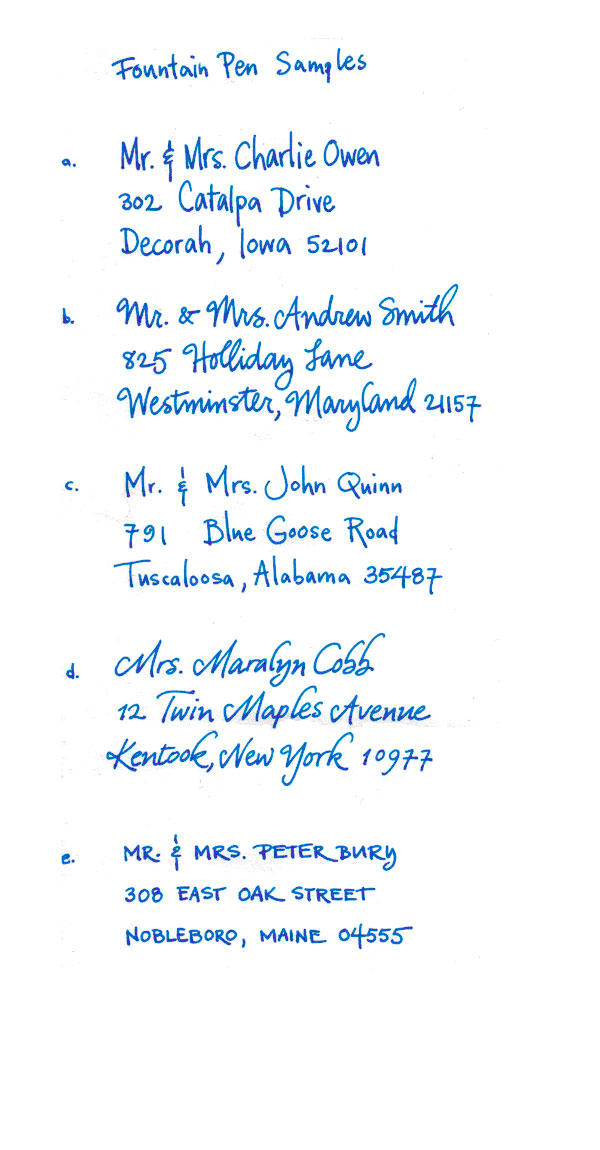 Fountain Pen Samples
a. Mr. & Mrs. Charlie Owen
302 Catalpa Drive
Decorah, Iowa 52101
b. Mr. & Mrs. Andrew Smith
825 Holliday Lane
Westminster, Maryland 21157
c. Mr. & Mrs. John Quinn
791 Blue Goose Road
Tuscaloosa, Alabama 35487
d. Mrs. Maralyn Cobb
12 Twin Maples Avenue
Kentook, New York 10977
e. MR. & MRS. PETER BURY
308 EAST OAK STREET
NOBLEBORO, MAINE 04555